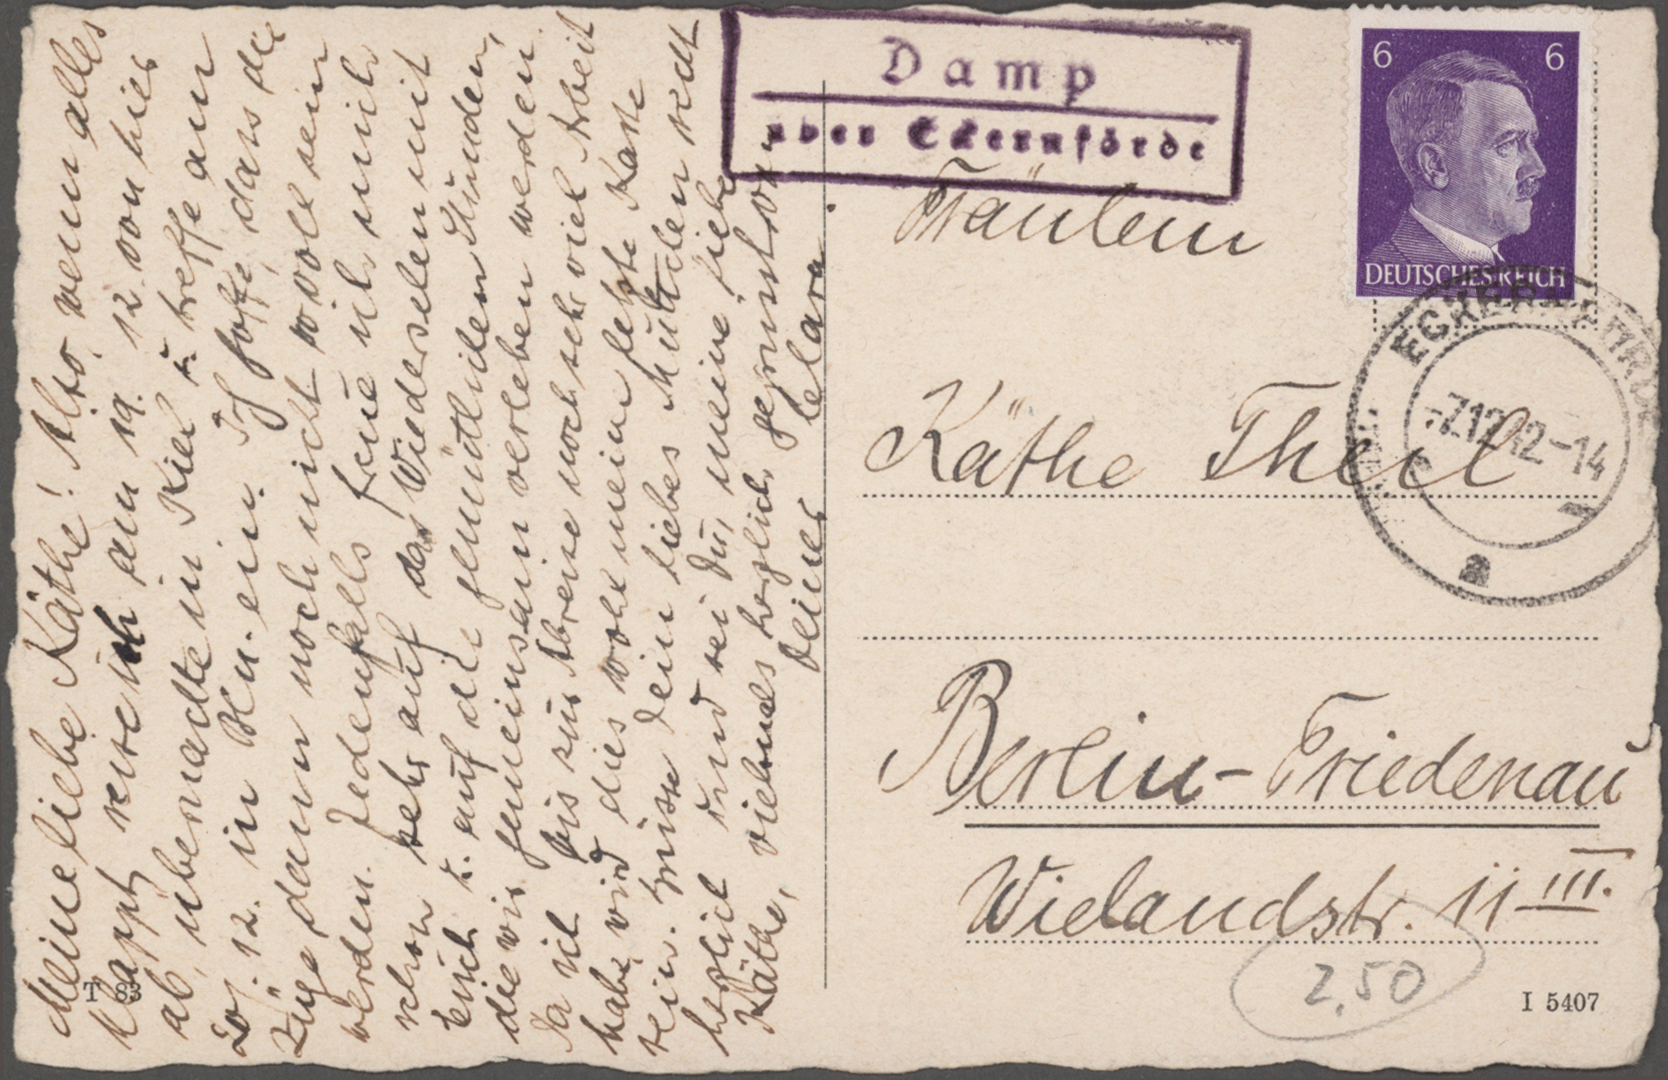 Meine liebe Käthe! Also, wenn alles
klappt reise ich am 19. 12. von hier
ab, übernachte in Kiel u. treffe am
20. 12. in Bln. ein. Ich hoffe, dass die
Züge dann noch nicht so voll sein
werden. Jedenfalls freue ich mich
schon sehr auf das Wiedersehen mit
Euch u. auf die gemütlichen Stunden,
die wir gemeinsam verleben werden.
Da ich bis zur Abreise noch sehr viel Arbeit
habe, wird dies wohl meine letzte Karte
sein. Grüsse Dein liebes Muttchen recht
herzlich und sei Du, meine liebe
Käthe, vielmals herzlich gegrüsst von
Deiner Clara.
T 83
Damp
über Eckernförde
6 6
DEUTSCHES REICH
ECKERNFÖRDE
-7.12. 12-14
a
Fräulein
Käthe Theil
Berlin-Friedenau
Wielandstr. 11 III.
2,50
I 5407